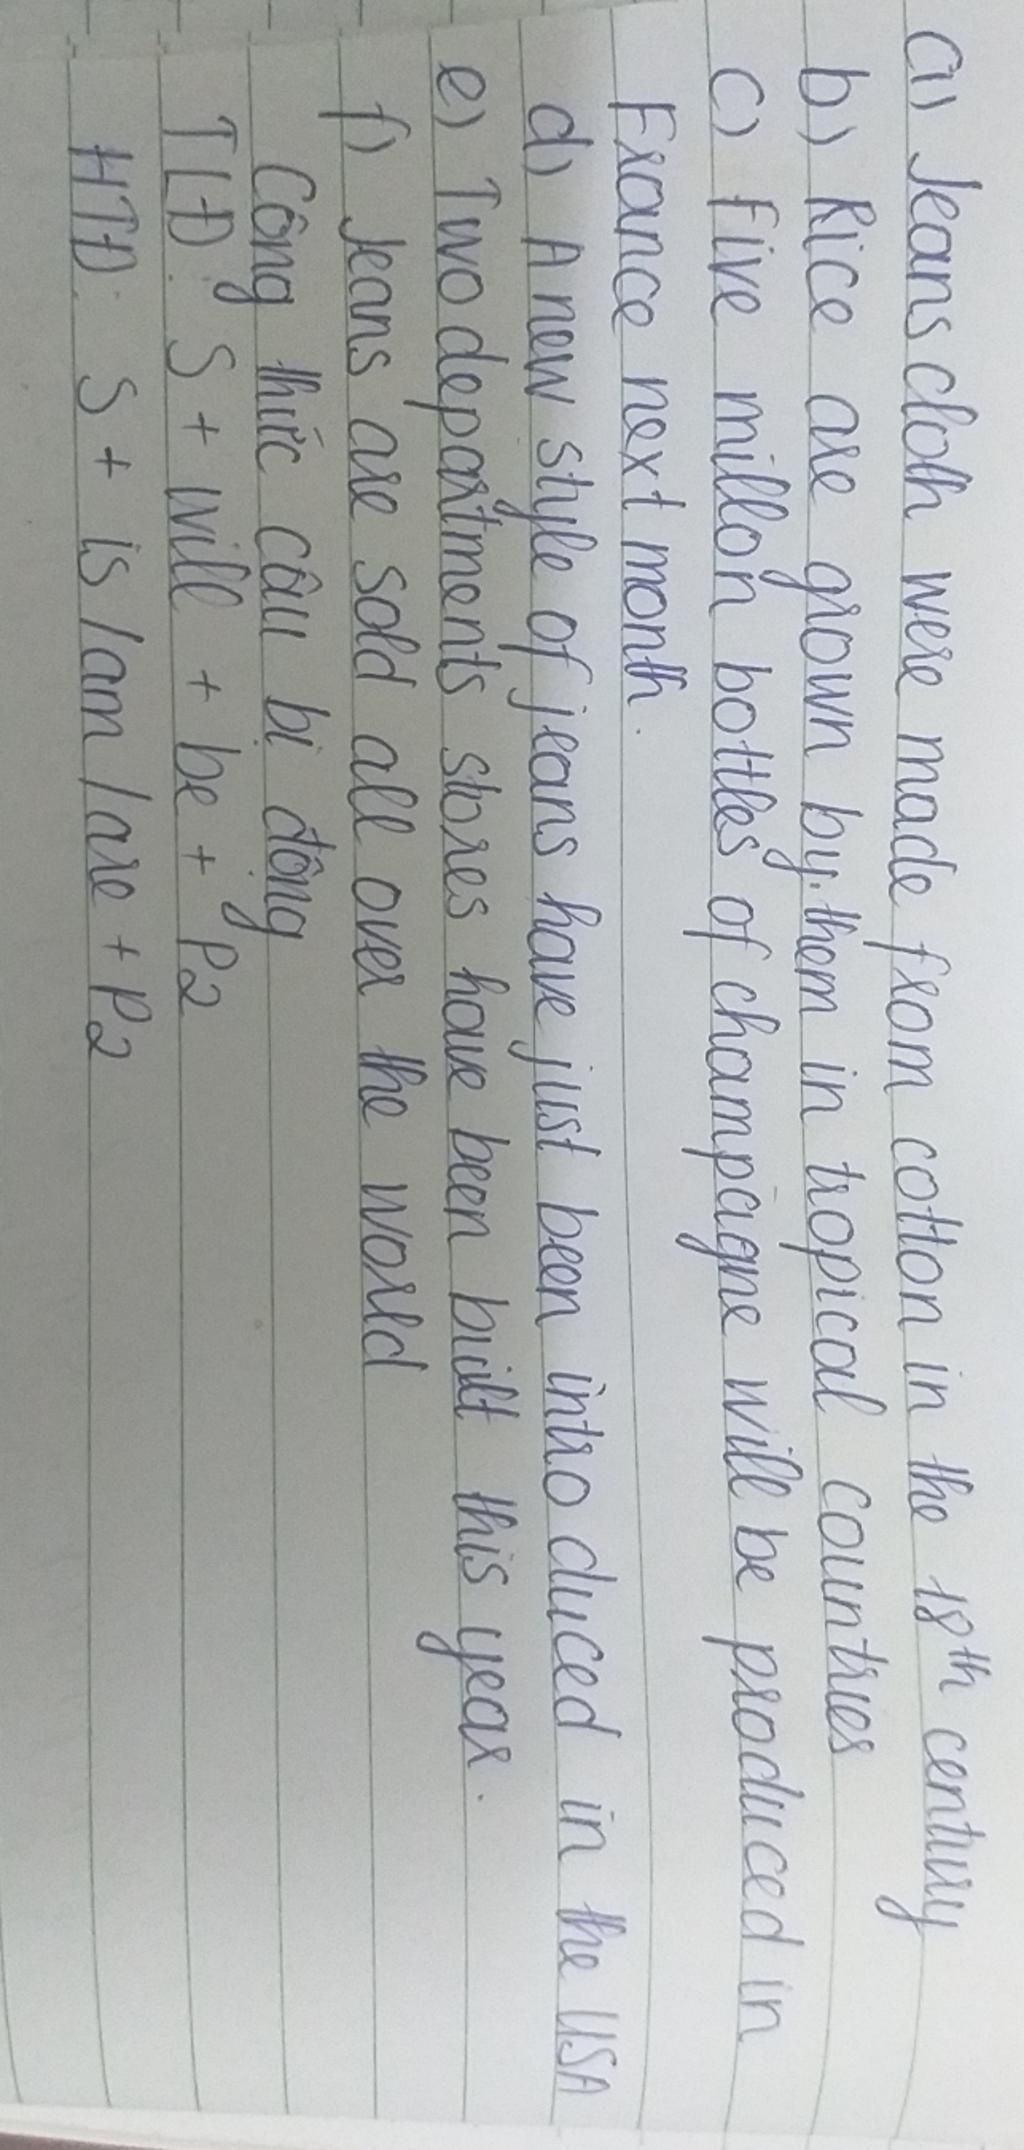 a) Jeans cloth were made from cotton in the 18th century
b) Rice are grown by them in tropical countries
c) Five millon bottles of champagne will be produced in
France next month.
d) A new style of jeans have just been introduced in the USA
e) Two departments stores have been built this year.
f) Jeans are sold all over the world
Công thức câu bị động
TLĐ: S + will + be + P2
HTĐ: S + is /am /are + P2